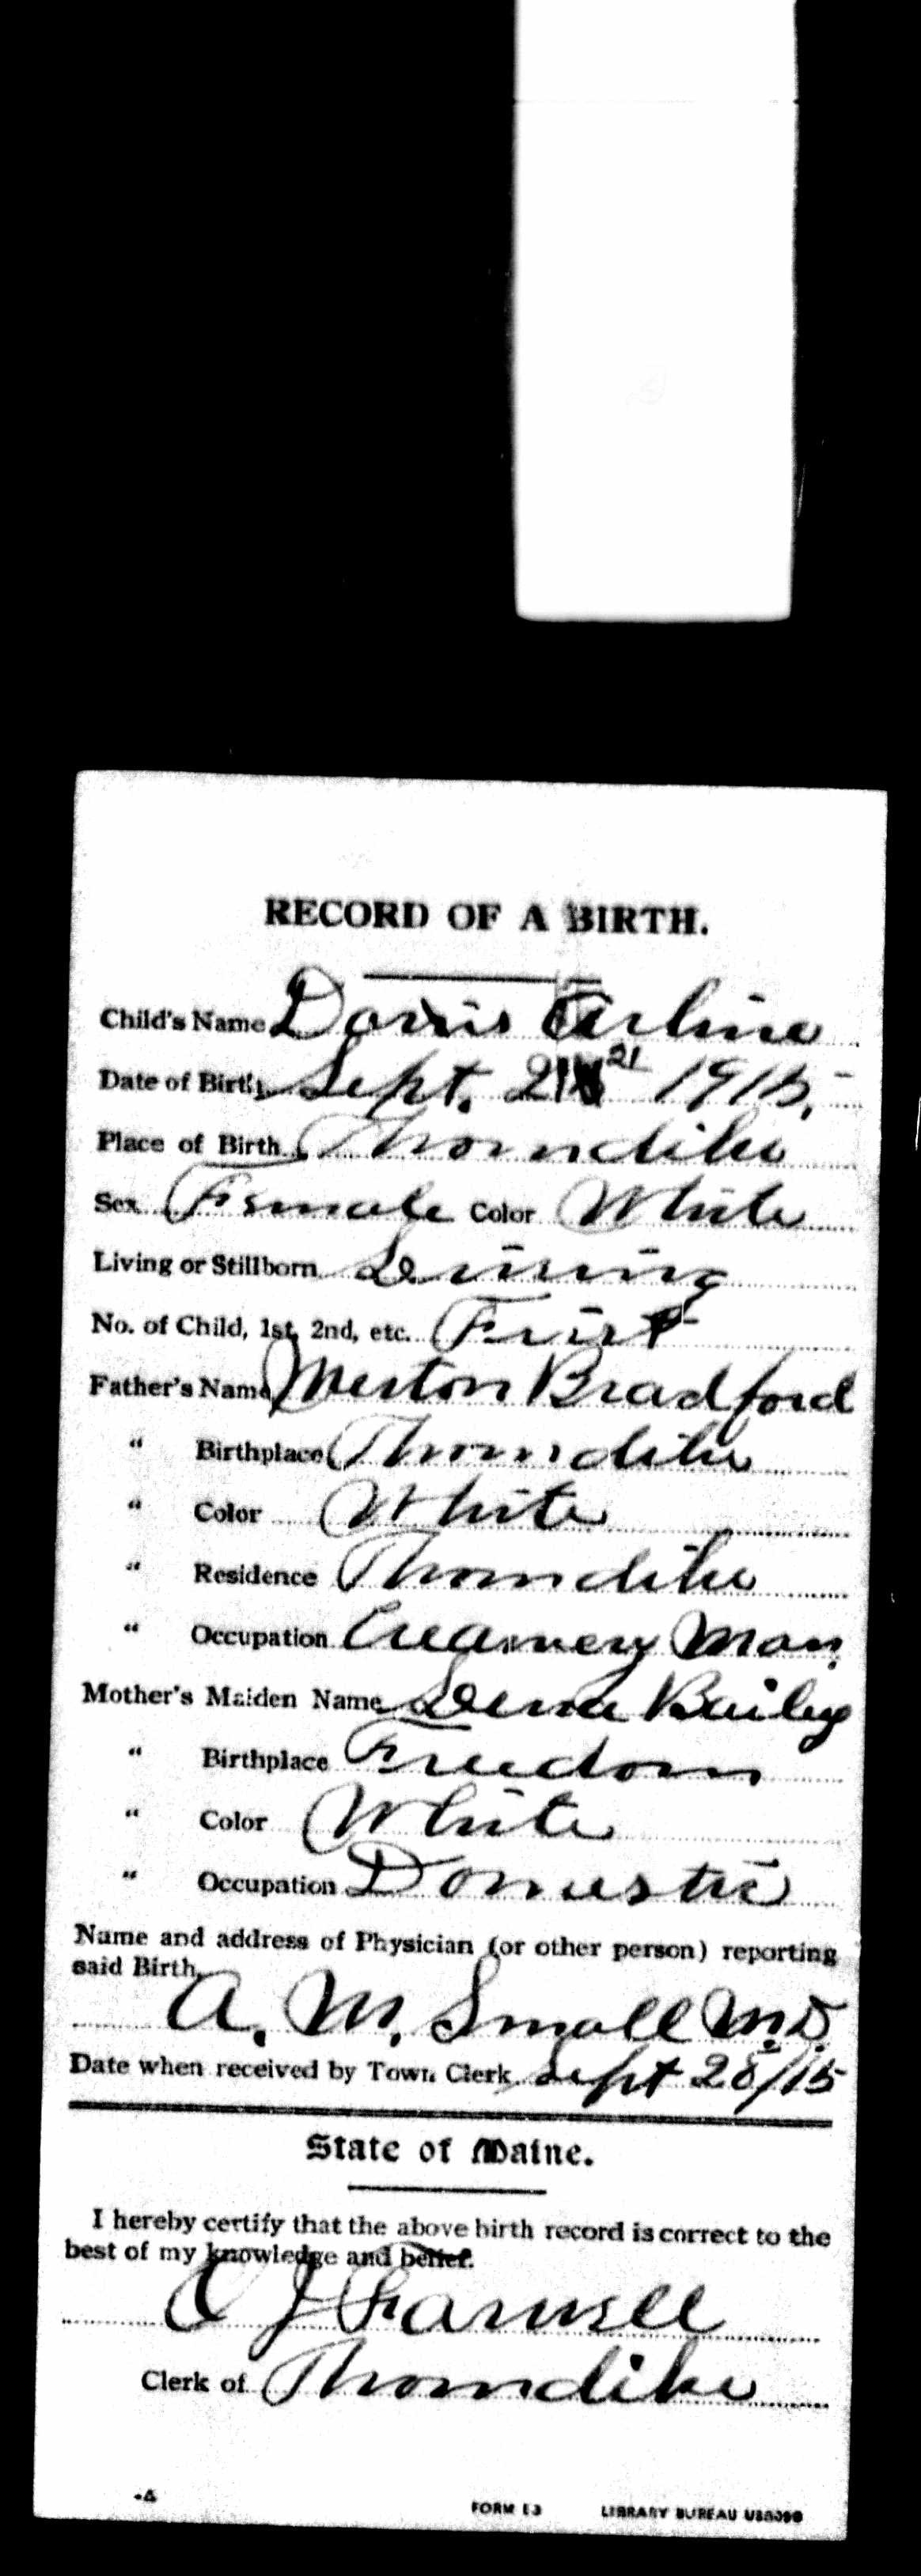 RECORD OF A BIRTH.
Child's Name Dorris Arline
Date of Birth Sept. 21 21 1915,
Place of Birth Thorndike
Sex Female Color White
Living or Stillborn Living
No. of Child, 1st, 2nd, etc. First
Father's Name Merton Bradford
" Birthplace Thorndike
" Color White
" Residence Thorndike
" Occupation Creamery Man.
Mother's Maiden Name Lena Bailey
" Birthplace Freedom
" Color White
" Occupation Domestic
Name and address of Physician (or other person) reporting
said Birth.
A. M. Small M.D.
Date when received by Town Clerk Sept 28/15
State of Maine.
I hereby certify that the above birth record is correct to the
best of my knowledge and belief.
O J Farwell
Clerk of Thorndike
FORM E3 LIBRARY BUREAU